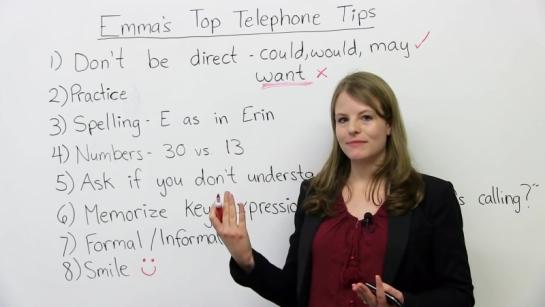 Emma's Top Telephone Tips
1) Don't be direct - could, would, may ✓
want ✗
2) Practice
3) Spelling - E as in Erin
4) Numbers - 30 vs. 13
5) Ask if you don't
6) Memorize Key calling?"
7) Formal /
8) Smile ☺